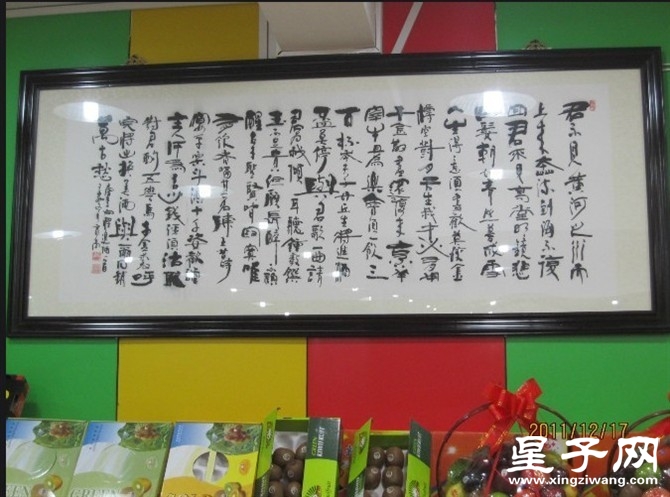 君不見黃河之水天
上來奔流到海不復
回君不見高堂明鏡悲
白髮朝如青絲暮成雪
人生得意須盡歡莫使金
樽空對月天生我材必有用
千金散盡還復來烹羊
宰牛且為樂會須一飲三
百杯岑夫子丹丘生將進酒
杯莫停與君歌一曲請
君為我傾耳聽鐘鼓饌
玉不足貴但願長醉不願
醒古來聖賢皆寂寞惟
有飲者留其名陳王昔時
宴平樂斗酒十千恣歡謔
主人何為言少錢徑須沽取
對君酌五花馬千金裘呼
兒將出換美酒與爾同銷
萬古愁
2011/12/17
星子网
www.xingziwang.com